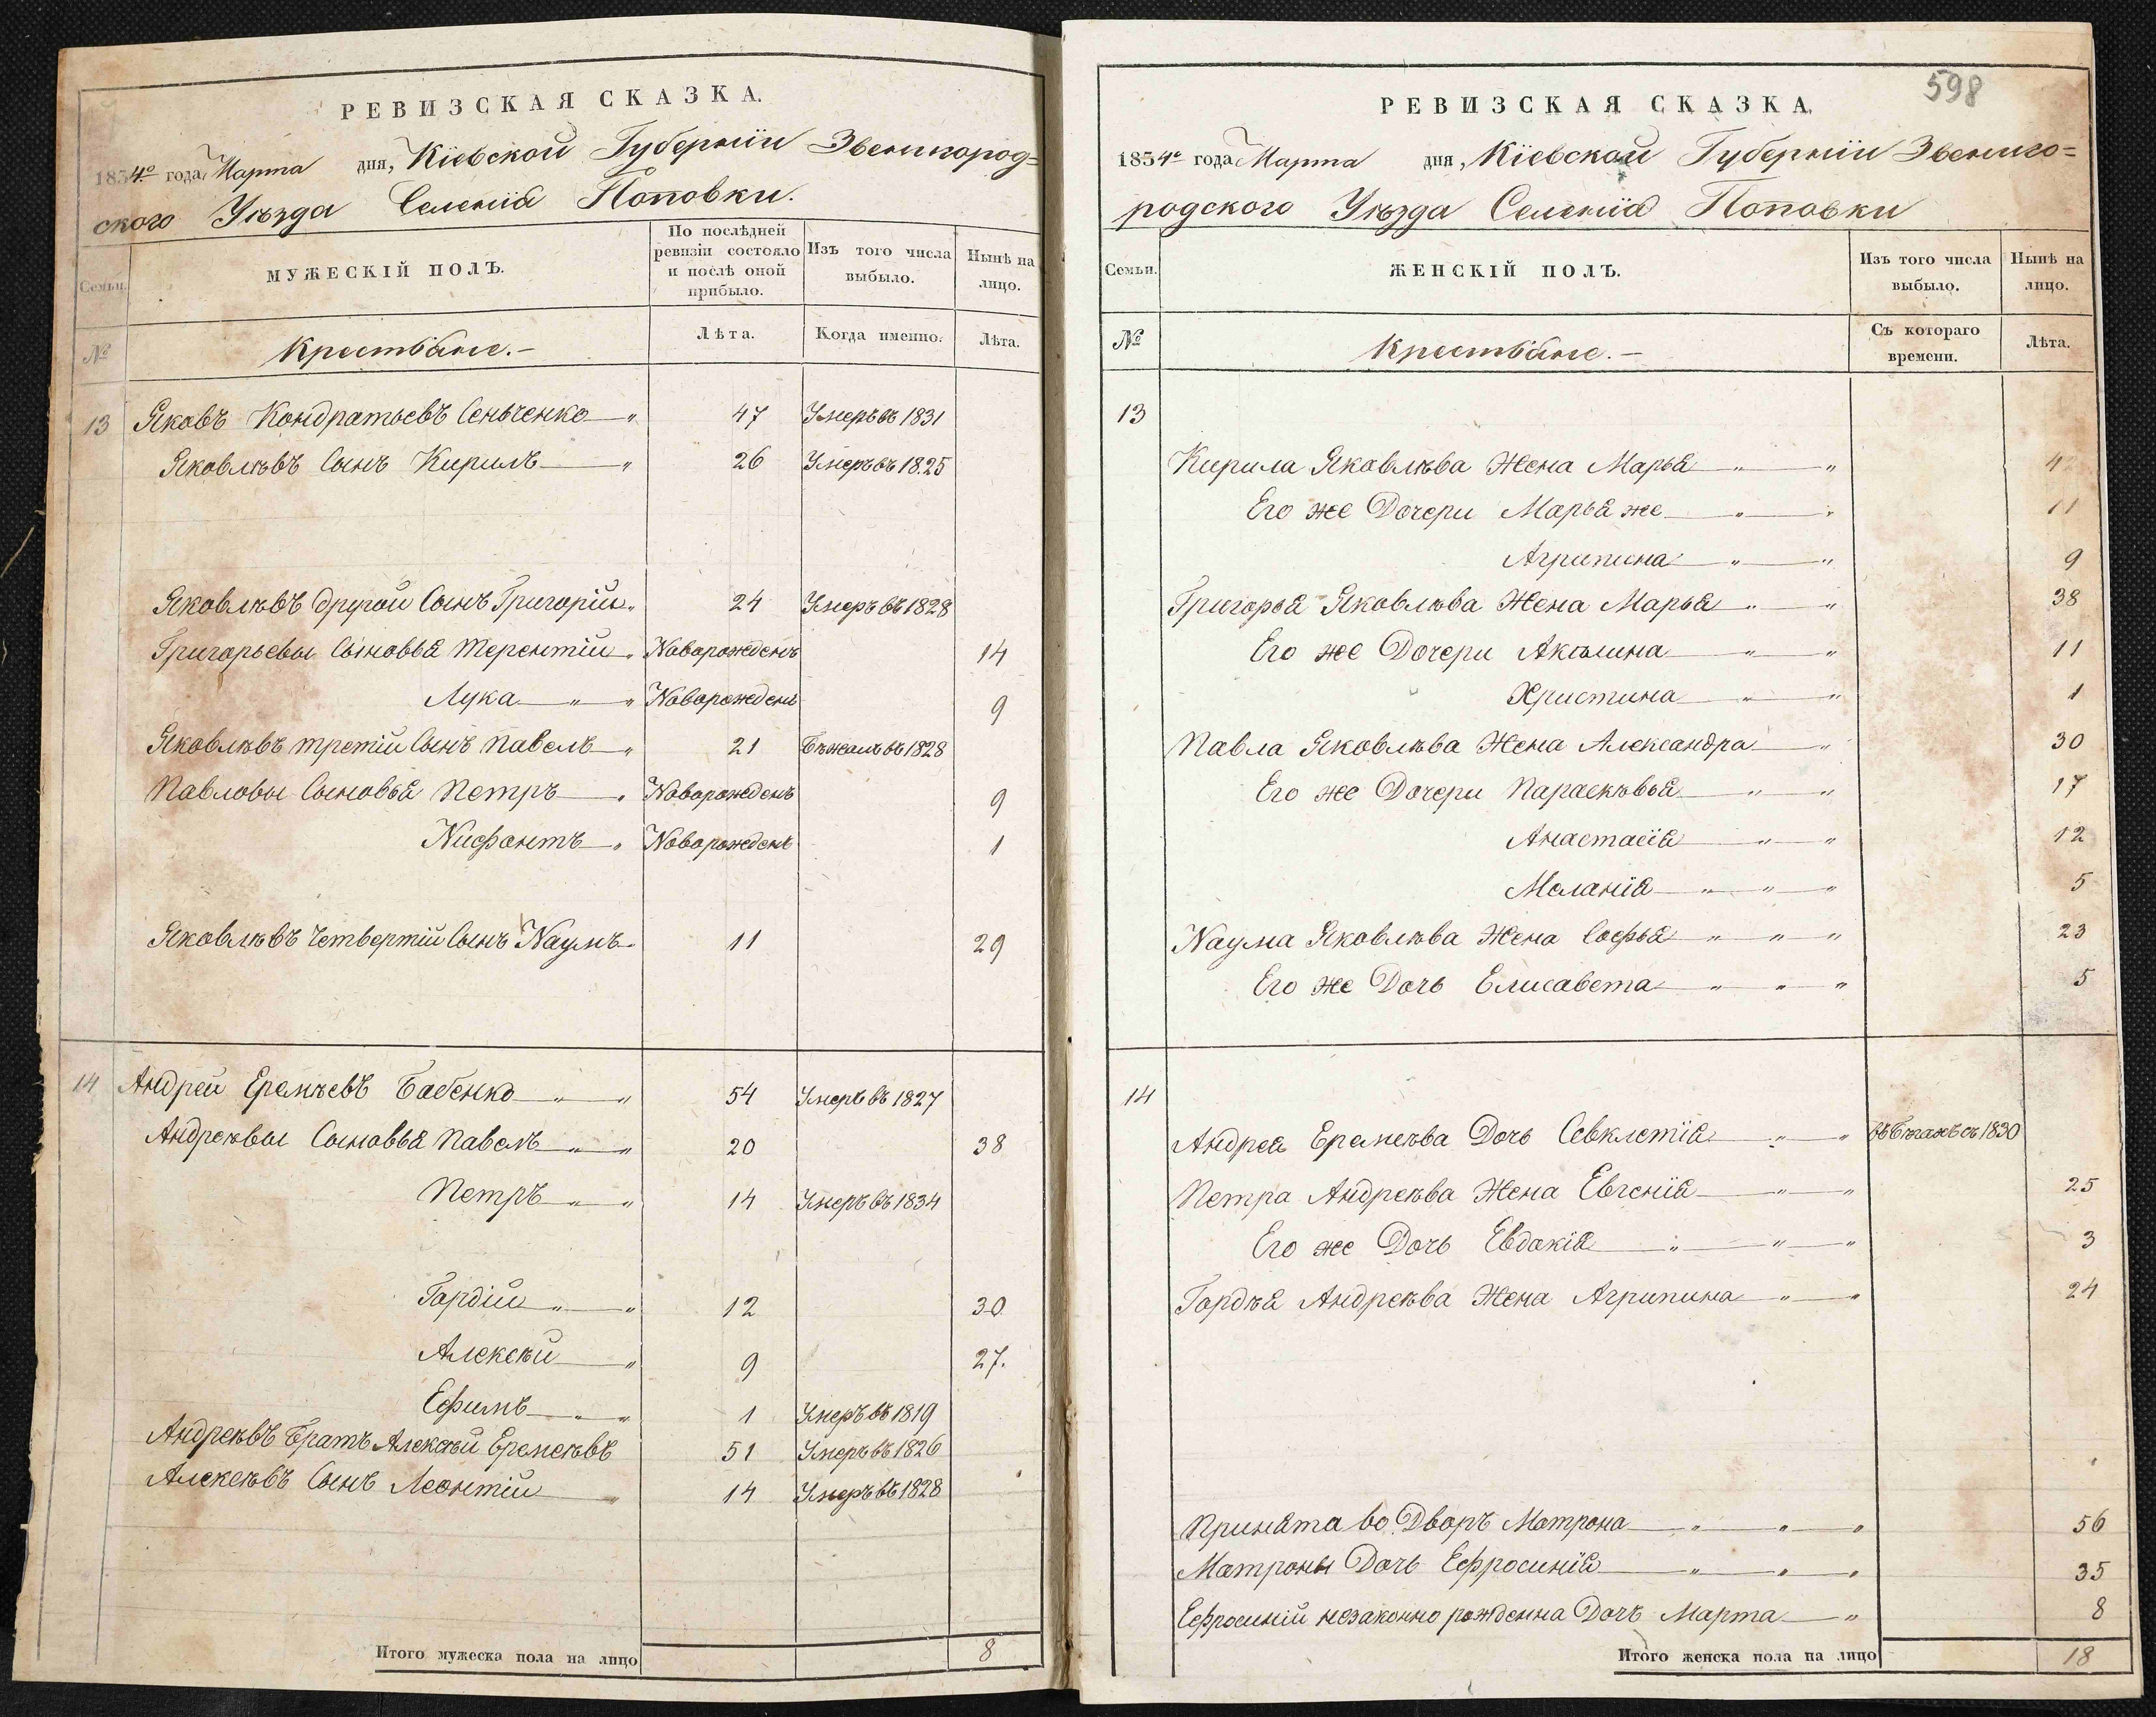 РЕВИЗСКАЯ СКАЗКА.
1834го года Марта дня, Кіевской Губерніи Звенигород=
ского Уѣзда Селенія Поповки.
Семьи.
МУЖЕСКІЙ ПОЛЪ.
По послѣдней ревизіи состояло и послѣ оной прибыло.
Изъ того числа выбыло.
Нынѣ на лицо.
№
Крестьяне.
Лѣта.
Когда именно.
Лѣта.
13 Яковъ Кондратьевъ Сеньченко 47 Умеръ въ 1831
Яковлѣвъ Сынъ Кирилъ 26 Умеръ въ 1825
Яковлѣвъ другой Сынъ Григорій 24 Умеръ въ 1828
Григорьевы Сыновья Терентій Новорожденъ 14
Лука Новорожденъ 9
Яковлѣвъ третій Сынъ Павелъ 21 Бѣжалъ въ 1828
Павловы Сыновья Петръ Новорожденъ 9
Нифонтъ Новорожденъ 1
Яковлѣвъ Четвертій Сынъ Наумъ 11 29
14 Андрей Еремѣевъ Бабенко 54 Умеръ въ 1827
Андреѣвы Сыновья Павелъ 20 38
Петръ 14 Умеръ въ 1834
Гордій 12 30
Алексѣй 9 27.
Ефимъ 1 Умеръ въ 1819
Андреѣвъ Братъ Алексѣй Еремеѣвъ 51 Умеръ въ 1826
Алексѣвъ Сынъ Леонтій 14 Умеръ въ 1828
Итого мужеска пола на лицо 8
598
РЕВИЗСКАЯ СКАЗКА.
1834го года Марта дня, Кіевской Губерніи Звениго=
родского Уѣзда Селенія Поповки
Семьи.
ЖЕНСКІЙ ПОЛЪ.
Изъ того числа выбыло.
Нынѣ на лицо.
№
Крестьяне.
Съ котораго времени.
Лѣта.
13
Кирила Яковлѣва Жена Марья 42
Его же Дочери Марья же 11
Агрипина 9
Григорья Яковлѣва Жена Марья 38
Его же Дочери Акилина 11
Христина 1
Павла Яковлѣва Жена Александра 30
Его же Дочери Параскѣвья 17
Анастасія 12
Меланія 5
Наума Яковлѣва Жена Софья 23
Его же Дочь Елисавета 5
14
Андрея Еремеѣва Дочь Севклетія въ Бѣгахъ съ 1830
Петра Андреѣва Жена Евгенія 25
Его же Дочь Евдокія 3
Гордѣя Андреѣва Жена Агрипина 24
Принята во Дворъ Матрона 56
Матроны Дочь Ефросинія 35
Ефросиніи незаконно рожденна Дочь Марта 8
Итого женска пола на лицо 18